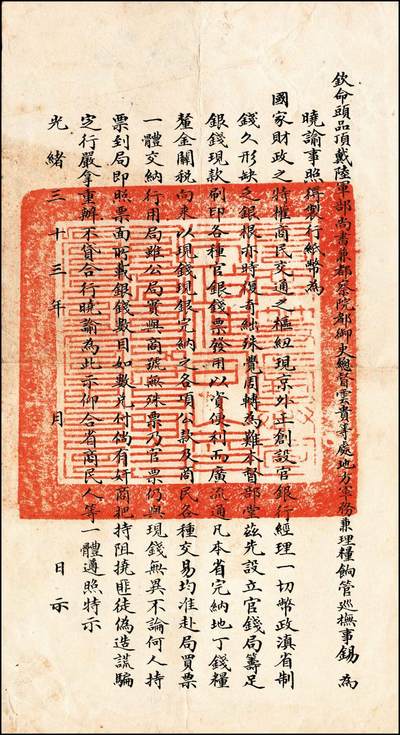 欽命頭品頂戴陸軍部尚書兼都察院都御史總督雲貴等處地方軍務兼理糧餉管巡撫事錫 為
曉諭事照得製行紙幣為
國家財政之特權商民交通之樞紐現京外業創設官銀行經理一切幣政滇省制
錢久形缺乏銀根亦時復奇絀殊覺周轉為難本督部堂茲先設立官錢局籌足
銀錢現款刷印各種官銀錢票發用以資便利而廣流通凡本省完納地丁錢糧
釐金關稅向來以現錢現銀完納之各項公款及商民各種交易均准赴局買票
一體交納行用局雖公局實與商號無殊票乃官票仍與現錢無異不論何人持
票到局即照票面所載銀錢數目如數兌付倘有奸商把持阻撓匪徒偽造謊騙
定行嚴拿重辦不貸合行曉諭為此示仰合省商民人等一體遵照特示
光緒三十三年 月 日示